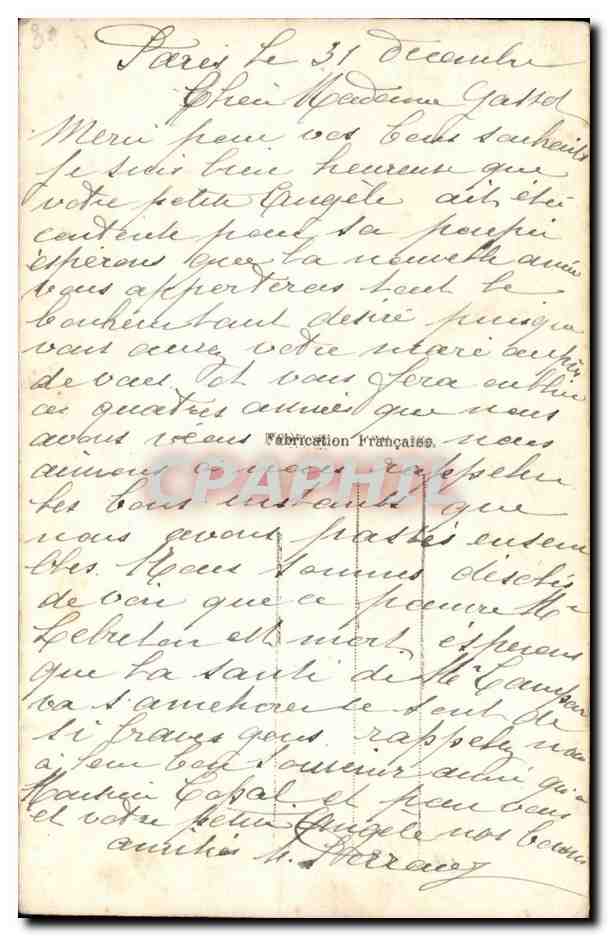 Paris le 31 décembre
Chère Madame Gassot
Merci pour vos bons souhaits
Je suis bien heureuse que
votre petite Angèle ait été
contente pour sa poupée
espérons que la nouvelle année
vous apporteras tout le
bonheur tant désiré puisque
vous aurez votre mari auprès
de vous et vous fera oublier
ces quatres années que nous
avons vécus nous
Fabrication Française.
aimons a nous rappeler
CPAPHIL
les bons instants que
nous avons passés ensem
bles. Nous sommes désolés
de voir que ce pauvre Mr
Lebreton est mort, espérons
que la santé de Mr
va s'améliorer ce sont de
si braves gens rappelez nous
à leur bon souvenir ainsi qu'a
Monsieur et pour vous
et votre petite Angèle nos bonnes
amitiés